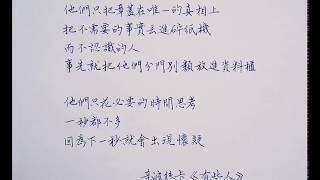 他們只把章蓋在唯一的真相上
把不需要的事實丟進碎紙機
而不認識的人
事先就把他們分門別類放進資料檔
他們只花必要的時間思考
一秒都不多
因為下一秒就會出現懷疑
辛波絲卡《有些人》